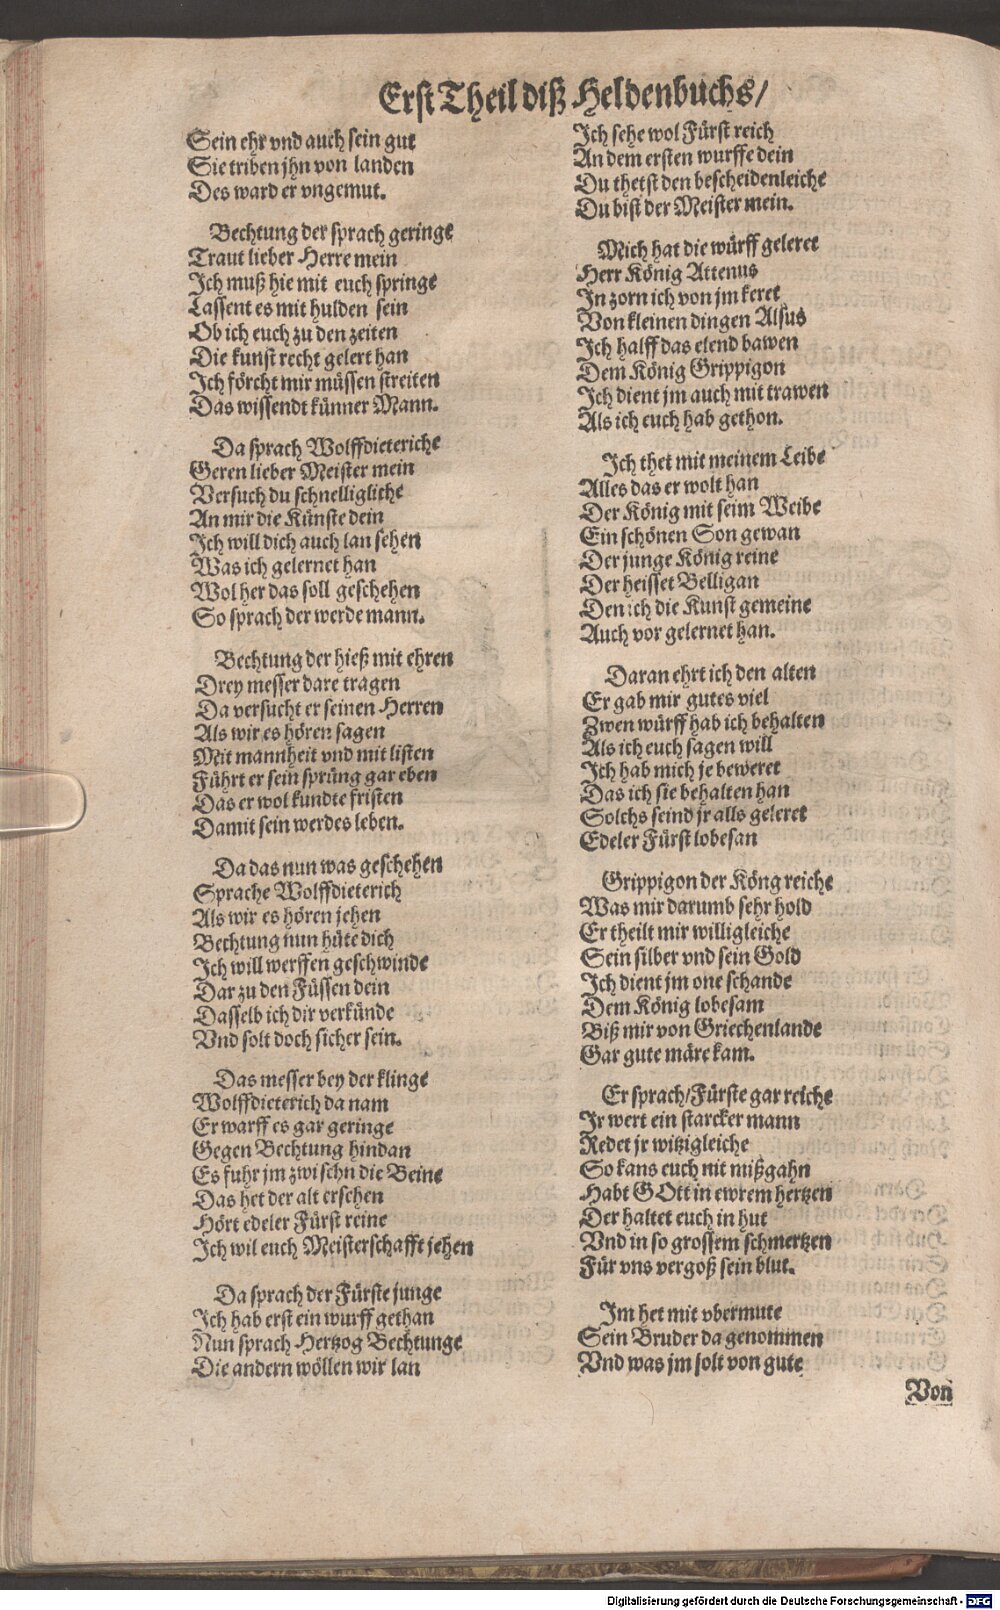 Erst Theil diß Heldenbuchs/
Sein ehr vnd auch sein gut
Sie triben jhn von landen
Des ward er vngemut.
Bechtung der sprach geringe
Traut lieber Herre mein
Ich muß hie mit euch springe
Lassent es mit hulden sein
Ob ich euch zu den zeiten
Die kunst recht gelert han
Ich förcht mir müssen streiten
Das wissendt künner Mann.
Da sprach Wolffdieteriche
Geren lieber Meister mein
Versuch du schnelligliche
An mir die Künste dein
Ich will dich auch lan sehen
Was ich gelernet han
Wol her das soll geschehen
So sprach der werde mann.
Bechtung der hieß mit ehren
Drey messer dare tragen
Da versucht er seinen Herren
Als wir es hören sagen
Mit mannheit vnd mit listen
Führt er sein sprüng gar eben
Das er wol kundte fristen
Damit sein werdes leben.
Da das nun was geschehen
Sprache Wolffdieterich
Als wir es hören jehen
Bechtung nun hüte dich
Ich will werffen geschwinde
Dar zu den Füssen dein
Dasselb ich dir verkünde
Vnd solt doch sicher sein.
Das messer bey der klinge
Wolffdieterich da nam
Er warff es gar geringe
Gegen Bechtung hindan
Es fuhr jm zwischn die Beine
Das het der alt ersehen
Hört edeler Fürst reine
Ich wil euch Meisterschafft jehen
Da sprach der Fürste junge
Ich hab erst ein wurff gethan
Nun sprach Hertzog Bechtunge
Die andern wöllen wir lan
Ich sehe wol Fürst reich
An dem ersten wurffe dein
Du thetst den bescheidenleiche
Du bist der Meister mein.
Mich hat die würff geleret
Herr König Attenus
In zorn ich von jm keret
Von kleinen dingen Alsus
Ich halff das elend bawen
Dem König Grippigon
Ich dient jm auch mit trawen
Als ich euch hab gethon.
Ich thet mit meinem Leibe
Alles das er wolt han
Der König mit seim Weibe
Ein schönen Son gewan
Der junge König reine
Der heisset Belligan
Den ich die Kunst gemeine
Auch vor gelernet han.
Daran ehrt ich den alten
Er gab mir gutes viel
Zwen würff hab ich behalten
Als ich euch sagen will
Ich hab mich je beweret
Das ich sie behalten han
Solchs seind jr alls geleret
Edeler Fürst lobesan
Grippigon der Köng reiche
Was mir darumb sehr hold
Er theilt mir willigleiche
Sein silber vnd sein Gold
Ich dient jm one schande
Dem König lobesam
Biß mir von Griechenlande
Gar gute märe kam.
Er sprach/Fürste gar reiche
Ir wert ein starcker mann
Redet jr witzigleiche
So kans euch nit mißgahn
Habt GOtt in ewrem hertzen
Der haltet euch in hut
Vnd in so grossem schmertzen
Für vns vergoß sein blut.
Im het mit vbermute
Sein Bruder da genommen
Vnd was jm solt von gute
Von
Digitalisierung gefördert durch die Deutsche Forschungsgemeinschaft - DFG